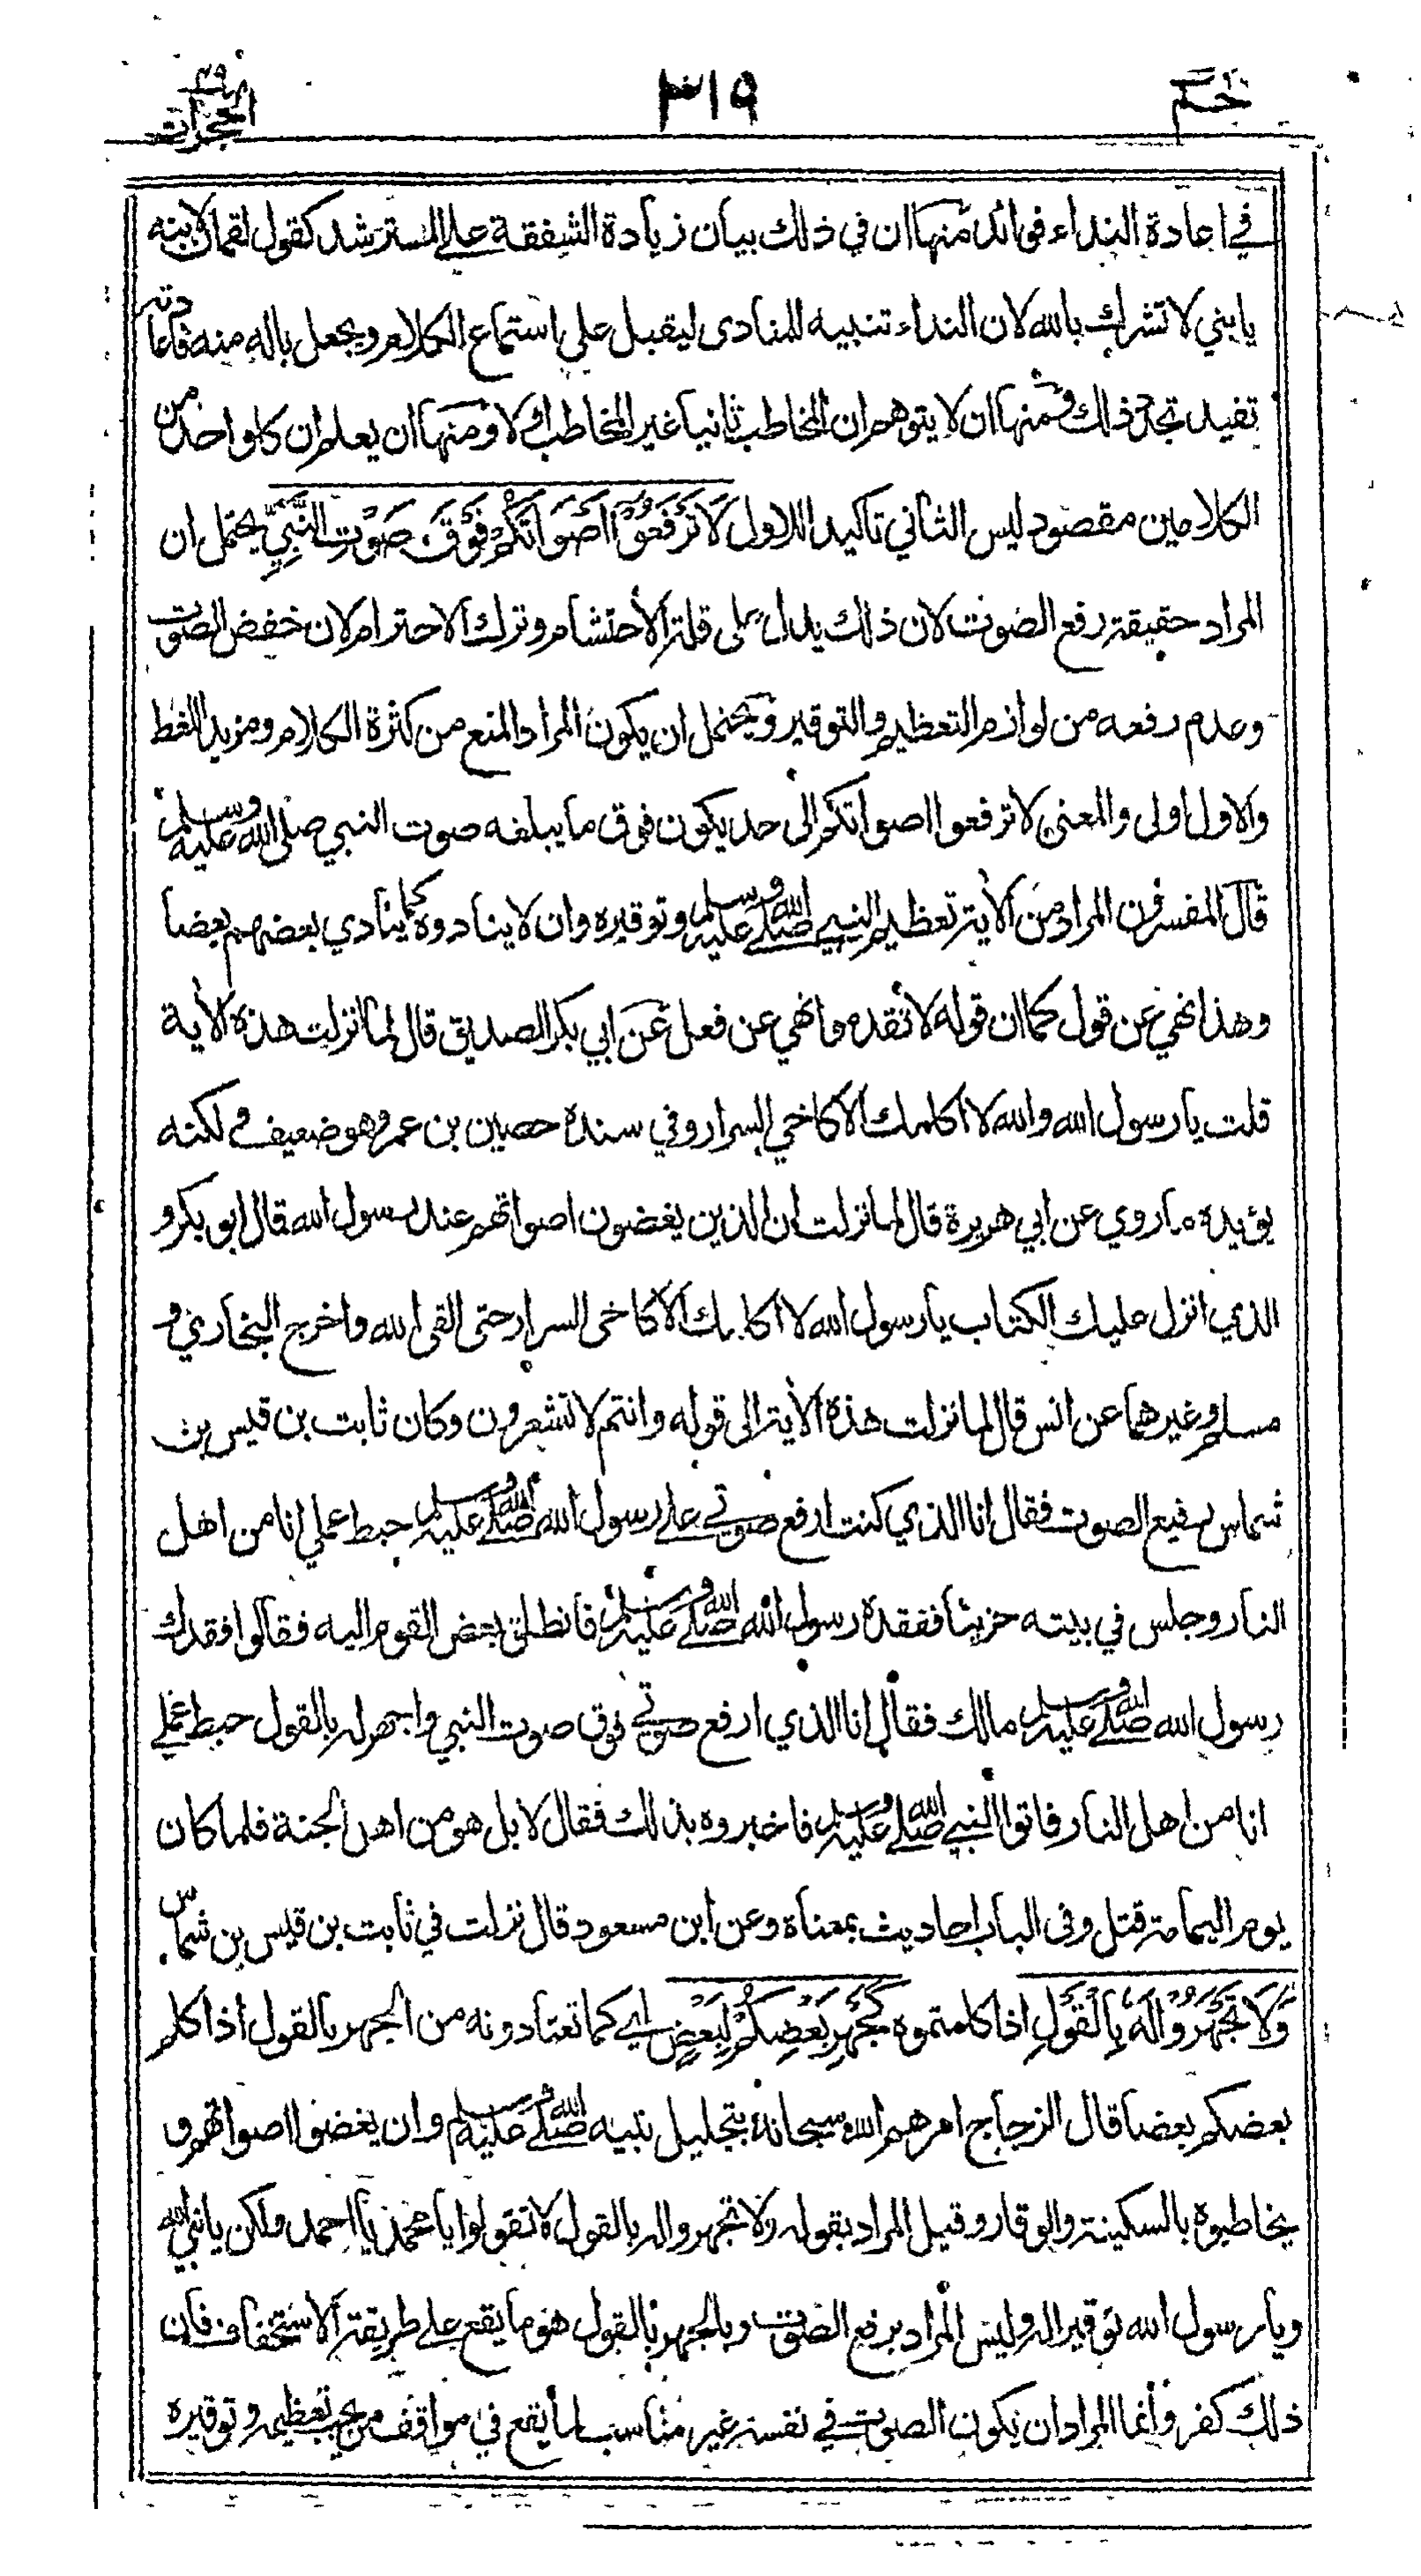 حٰم
٣١٩
الحجرات ٤٩
في اعادة النداء فوائد منها ان في ذلك بيان زيادة الشفقة على المسترشد كقول لقمان لابنه
يا بني لا تشرك بالله لان النداء تنبيه للمنادى ليقبل على استماع الكلام ويجعل باله منه فاعادته
تفيد تجدد ذلك ومنها ان لا يتوهم ان المخاطب ثانيا غير المخاطب اولا ومنها ان يعلم ان كل واحد من
الكلامين مقصود ليس الثاني تاكيدا للاول لَا تَرْفَعُوْا اَصْوَاتَكُمْ فَوْقَ صَوْتِ النَّبِيِّ يحتمل ان
المراد حقيقة رفع الصوت لان ذلك يدل على قلة الاحتشام وترك الاحترام لان خفض الصوت
وعدم رفعه من لوازم التعظيم والتوقير ويحتمل ان يكون المراد المنع من كثرة الكلام ومزيد اللغط
والاول اولى والمعنى لا ترفعوا اصواتكم الى حد يكون فوق ما يبلغه صوت النبي صلى الله عليه وسلم
قال المفسرون المراد من الاية تعظيم النبي صلى الله عليه وسلم وتوقيره وان لا ينادوه كما ينادي بعضهم بعضا
وهذا نهي عن قول كما ان قوله لا تقدموا نهي عن فعل عن ابي بكر الصديق قال لما نزلت هذه الاية
قلت يا رسول الله والله لا اكلمك الا كاخي السرار وفي سنده حصين بن عمر وهو ضعيف ولكنه
يؤيده ما روي عن ابي هريرة قال لما نزلت ان الذين يغضون اصواتهم عند رسول الله قال ابو بكر و
الذي انزل عليك الكتاب يا رسول الله لا اكلمك الا كاخي السرار حتى القى الله واخرج البخاري و
مسلم وغيرهما عن انس قال لما نزلت هذه الاية الى قوله وانتم لا تشعرون وكان ثابت بن قيس بن
شماس رفيع الصوت فقال انا الذي كنت ارفع صوتي على رسول الله صلى الله عليه وسلم حبط عملي انا من اهل
النار وجلس في بيته حزينا ففقده رسول الله صلى الله عليه وسلم فانطلق بعض القوم اليه فقالوا فقدك
رسول الله صلى الله عليه وسلم مالك فقال انا الذي ارفع صوتي فوق صوت النبي واجهر له بالقول حبط عملي
انا من اهل النار فاتوا النبي صلى الله عليه وسلم فاخبروه بذلك فقال لا بل هو من اهل الجنة فلما كان
يوم اليمامة قتل وفي الباب احاديث بمعناه وعن ابن مسعود قال نزلت في ثابت بن قيس بن شماس
وَلَا تَجْهَرُوْا لَهٗ بِالْقَوْلِ اذا كلمتموه كَجَهْرِ بَعْضِكُمْ لِبَعْضٍ اي كما تعتادونه من الجهر بالقول اذا كلم
بعضكم بعضا قال الزجاج امرهم الله سبحانه بتجليل نبيه صلى الله عليه وسلم وان يغضوا اصواتهم و
يخاطبوه بالسكينة والوقار وقيل المراد بقوله ولا تجهروا له بالقول لا تقولوا يا محمد يا احمد ولكن يا نبي الله
ويا رسول الله توقيرا له وليس المراد برفع الصوت وبالجهر بالقول هو ما يقع على طريقة الاستخفاف فان
ذلك كفر وانما المراد ان يكون الصوت في نفسه غير مناسب لما يقع في مواقف من يجب تعظيمه وتوقيره